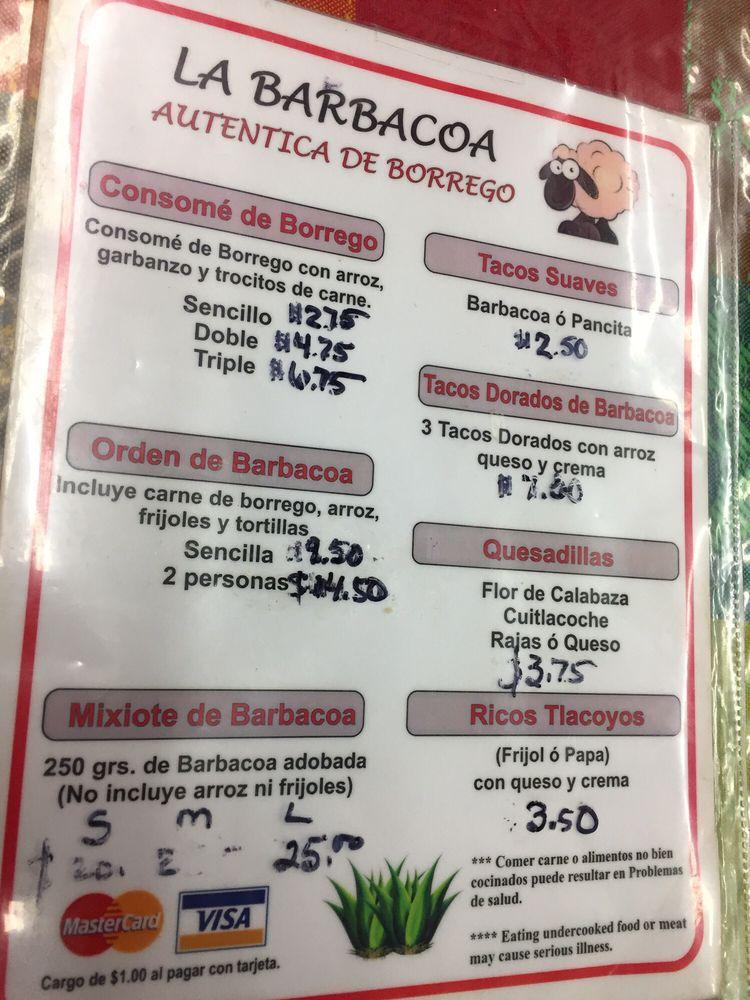 LA BARBACOA
AUTENTICA DE BORREGO
Consomé de Borrego
Consomé de Borrego con arroz,
garbanzo y trocitos de carne.
Sencillo $2.75
Doble $4.75
Triple $6.75
Orden de Barbacoa
Incluye carne de borrego, arroz,
frijoles y tortillas
Sencilla 9.50
2 personas $14.50
Mixiote de Barbacoa
250 grs. de Barbacoa adobada
(No incluye arroz ni frijoles)
S m L
25.00
MasterCard VISA
Cargo de $1.00 al pagar con tarjeta.
Tacos Suaves
Barbacoa ó Pancita
$2.50
Tacos Dorados de Barbacoa
3 Tacos Dorados con arroz
queso y crema
Quesadillas
Flor de Calabaza
Cuitlacoche
Rajas ó Queso
$3.75
Ricos Tlacoyos
(Frijol ó Papa)
con queso y crema
3.50
*** Comer carne o alimentos no bien
cocinados puede resultar en Problemas
de salud.
**** Eating undercooked food or meat
may cause serious illness.